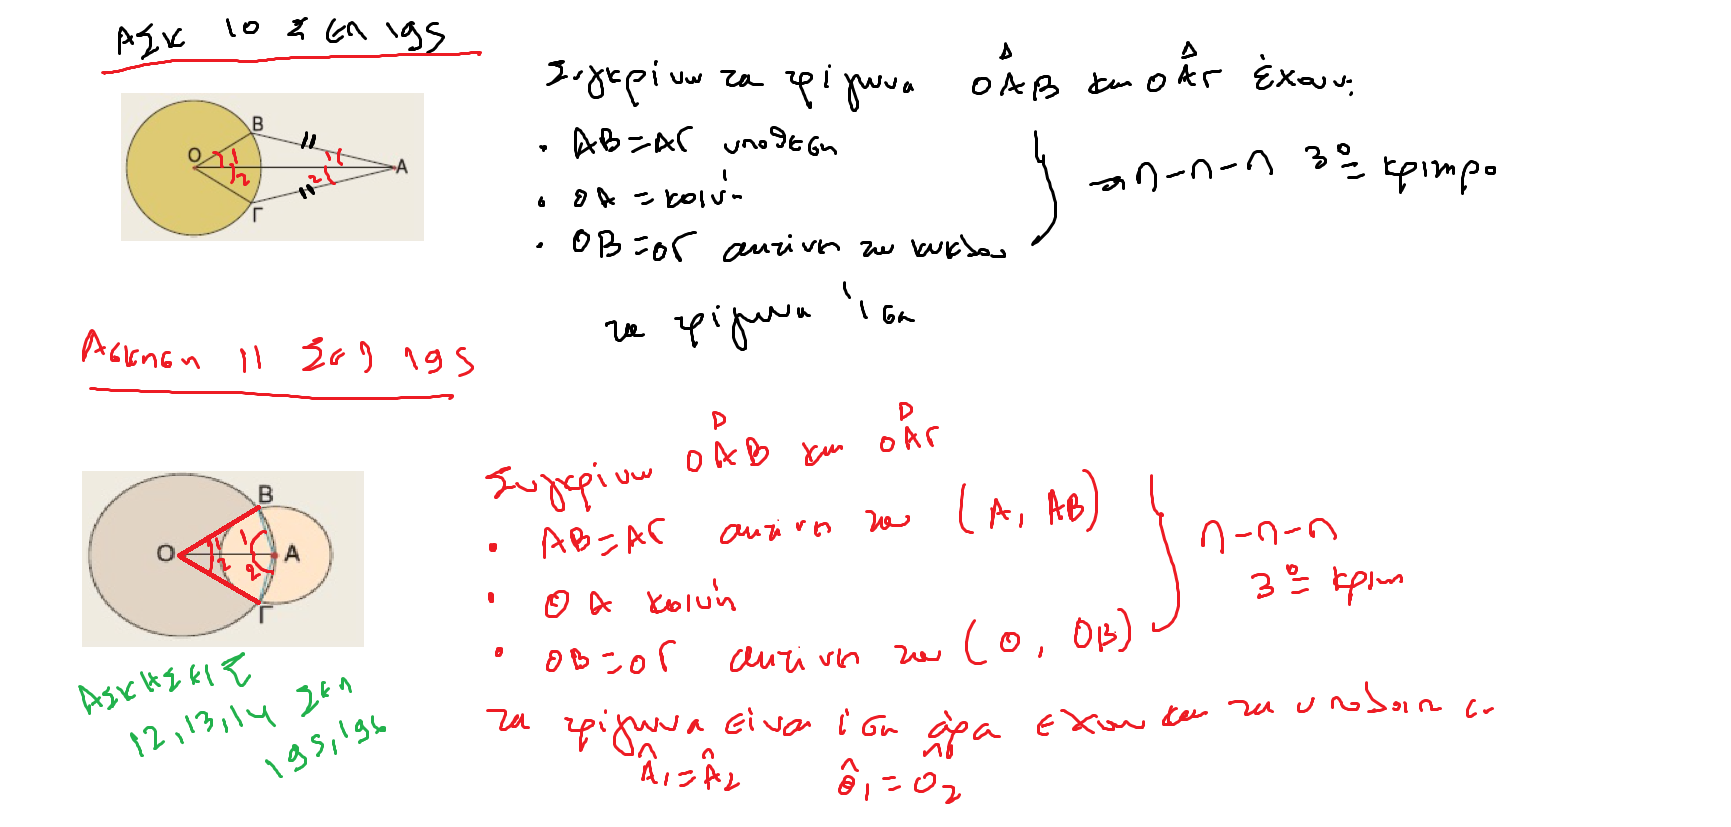 ΑΣΚ 10 Σελ 195
Συγκρίνω τα τρίγωνα ΟΑΒ και ΟΑΓ έχουν:
• ΑΒ=ΑΓ υπόθεση
• ΟΑ = κοινή
• ΟΒ=ΟΓ ακτίνες του κύκλου
→ Π-Π-Π 3º κριτηρο
τα τρίγωνα ίσα
Β
Ο 1
2
1
2
Α
Γ
Άσκηση 11 Σελ 195
Συγκρίνω ΟΑΒ και ΟΑΓ
• ΑΒ=ΑΓ ακτίνες του (Α, ΑΒ)
• ΟΑ κοινή
• ΟΒ=ΟΓ ακτίνες του (Ο, ΟΒ)
Π-Π-Π
3º κριτ
τα τρίγωνα είναι ίσα άρα έχουν και τα υπόλοιπα
Â1=Â2 Ô1=Ô2
Β
Ο 1
2
1
2
Α
Γ
ΑΣΚΗΣΕΙΣ
12,13,14 Σελ
195,196